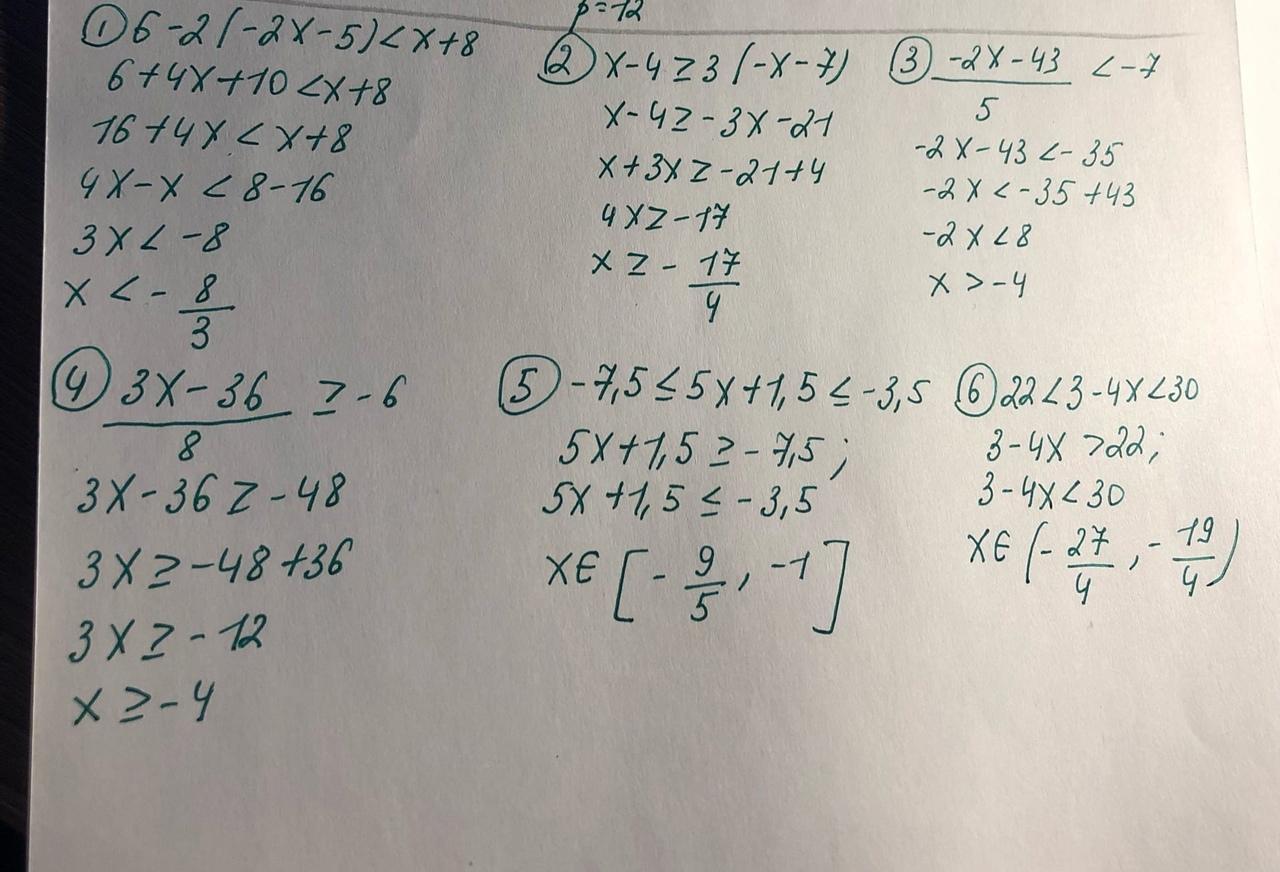 p=12
① 6-2(-2x-5)<x+8
6+4x+10<x+8
16+4x<x+8
4x-x<8-16
3x<-8
x<-8/3
② x-4≥3(-x-7)
x-4≥-3x-21
x+3x≥-21+4
4x≥-17
x≥-17/4
③ -2x-43/5 <-7
-2x-43<-35
-2x<-35+43
-2x<8
x>-4
④ 3x-36/8 ≥-6
3x-36≥-48
3x≥-48+36
3x≥-12
x≥-4
⑤ -7,5≤5x+1,5≤-3,5
5x+1,5≥-7,5;
5x+1,5≤-3,5
x∈[-9/5,-1]
⑥ 22<3-4x<30
3-4x>22;
3-4x<30
x∈(-27/4,-19/4)